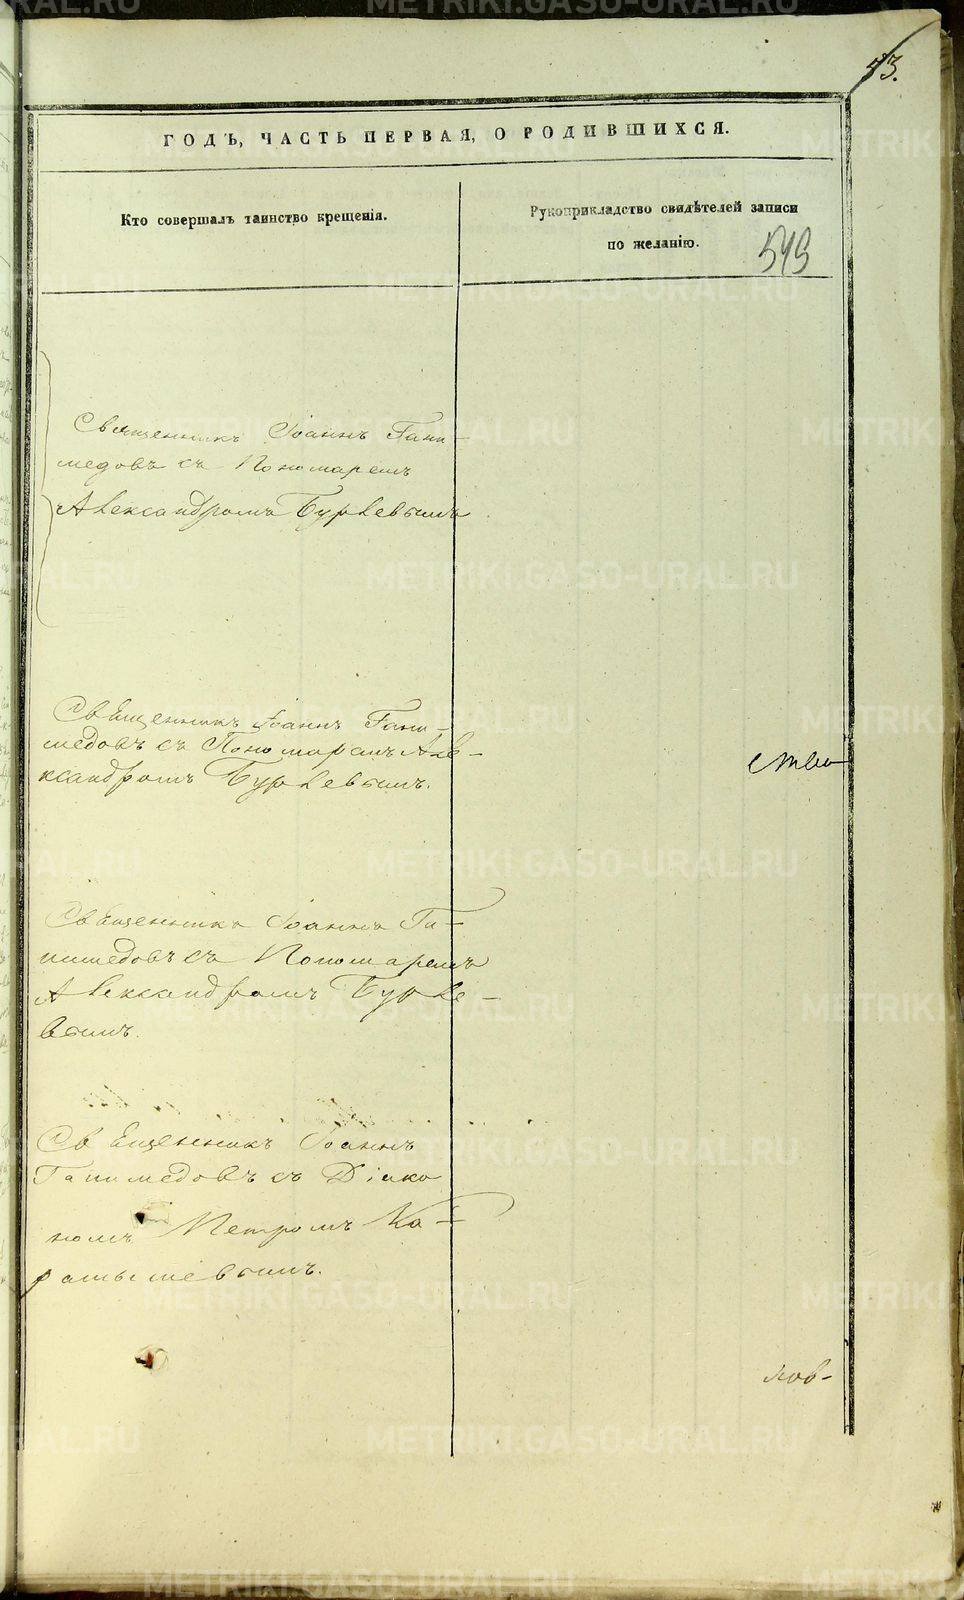 53.
ГОДЪ, ЧАСТЬ ПЕРВАЯ, О РОДИВШИХСЯ.
Кто совершалъ таинство крещенія.
Рукоприкладство свидѣтелей записи
по желанію.
Священникъ Іоаннъ Гани-
медовъ съ Пономаремъ
Александромъ Бурлевымъ
Священникъ Іоаннъ Гани-
медовъ съ Пономаремъ Але-
ксандромъ Бурлевымъ.
ство
Священникъ Іоаннъ Га-
нимедовъ съ Пономаремъ
Александромъ Бурле-
вымъ.
Священникъ Іоаннъ
Ганимедовъ съ Діако
номъ Петромъ Ка-
рамышевымъ.
нов-
METRIKI.GASO-URAL.RU